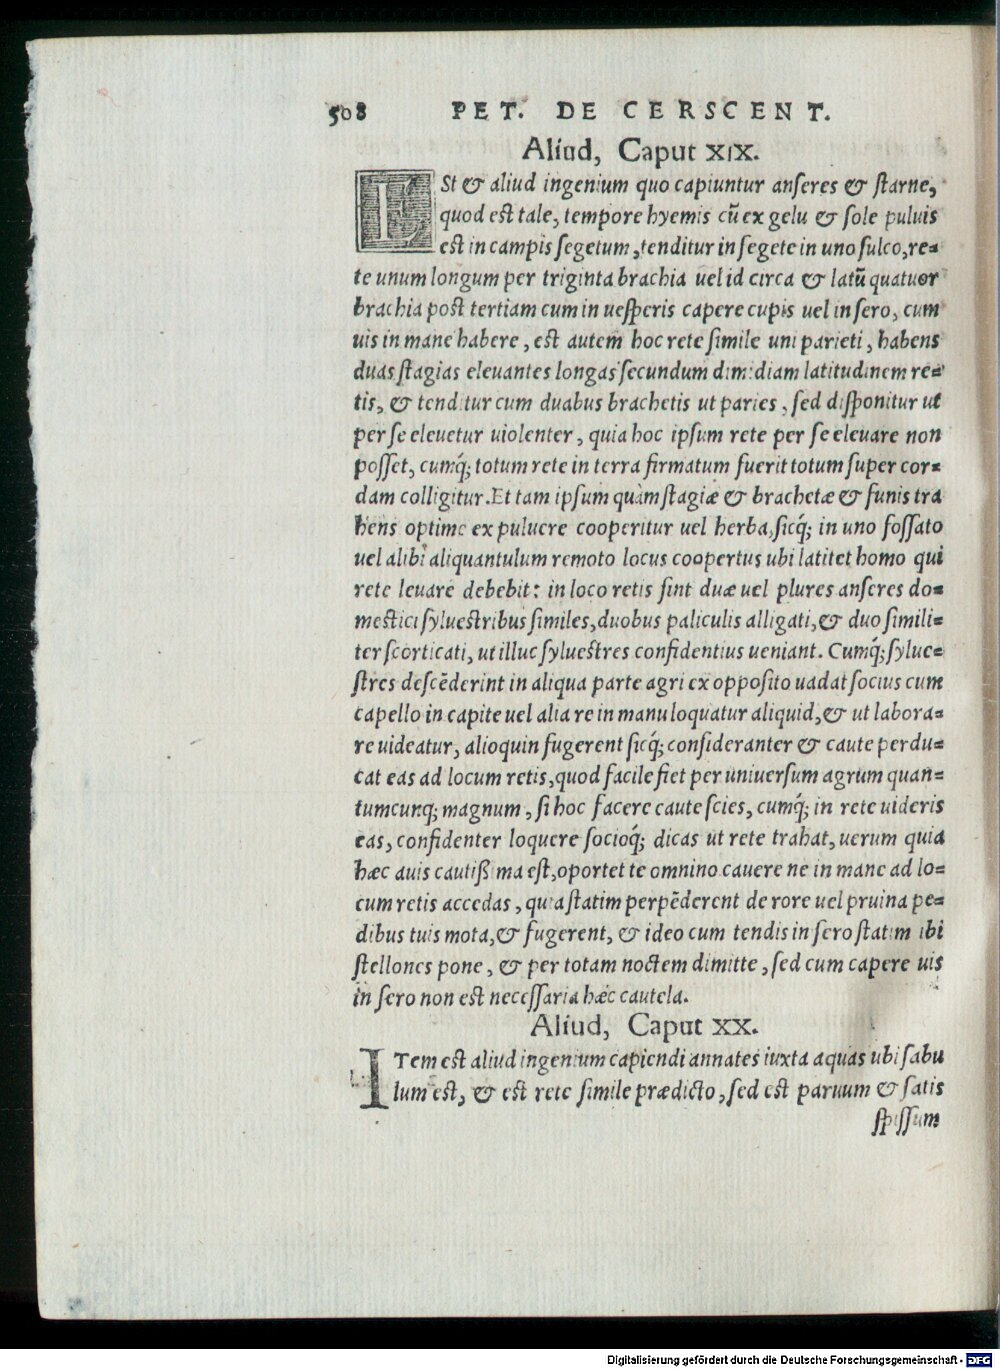 508 PET. DE CERSCENT.
Aliud, Caput XIX.
ESt & aliud ingenium quo capiuntur anseres & starne,
quod est tale, tempore hyemis cũ ex gelu & sole puluis
est in campis segetum, tenditur in segete in uno sulco, re-
te unum longum per triginta brachia uel id circa & latũ quatuor
brachia post tertiam cum in uesperis capere cupis uel in sero, cum
uis in mane habere, est autem hoc rete simile uni parieti, habens
duas stagias eleuantes longas secundum dimidiam latitudinem re-
tis, & tenditur cum duabus brachetis ut paries, sed disponitur ut
per se eleuetur uiolenter, quia hoc ipsum rete per se eleuare non
posset, cumq́; totum rete in terra firmatum fuerit totum super cor-
dam colligitur. Et tam ipsum quàm stagiæ & brachetæ & funis tra
hens optime ex puluere cooperitur uel herba, sicq́; in uno fossato
uel alibi aliquantulum remoto locus coopertus ubi latitet homo qui
rete leuare debebit: in loco retis sint duæ uel plures anseres do-
mestici syluestribus similes, duobus paliculis alligati, & duo simili-
ter scorticati, ut illuc syluestres confidentius ueniant. Cumq́; sylue-
stres descẽderint in aliqua parte agri ex opposito uadat socius cum
capello in capite uel alia re in manu loquatur aliquid, & ut labora-
re uideatur, alioquin fugerent sicq́; consideranter & caute perdu-
cat eas ad locum retis, quod facile fiet per uniuersum agrum quan-
tumcunq; magnum, si hoc facere caute scies, cumq́; in rete uideris
eas, confidenter loquere socioq́; dicas ut rete trahat, uerum quia
hæc auis cautißima est, oportet te omnino cauere ne in mane ad lo-
cum retis accedas, quia statim perpẽderent de rore uel pruina pe-
dibus tuis mota, & fugerent, & ideo cum tendis in sero statim ibi
stellones pone, & per totam noctem dimitte, sed cum capere uis
in sero non est necessaria hæc cautela.
Aliud, Caput XX.
ITem est aliud ingenium capiendi annates iuxta aquas ubi sabu
lum est, & est rete simile prædicto, sed est paruum & satis
spissum
Digitalisierung gefördert durch die Deutsche Forschungsgemeinschaft - DFG